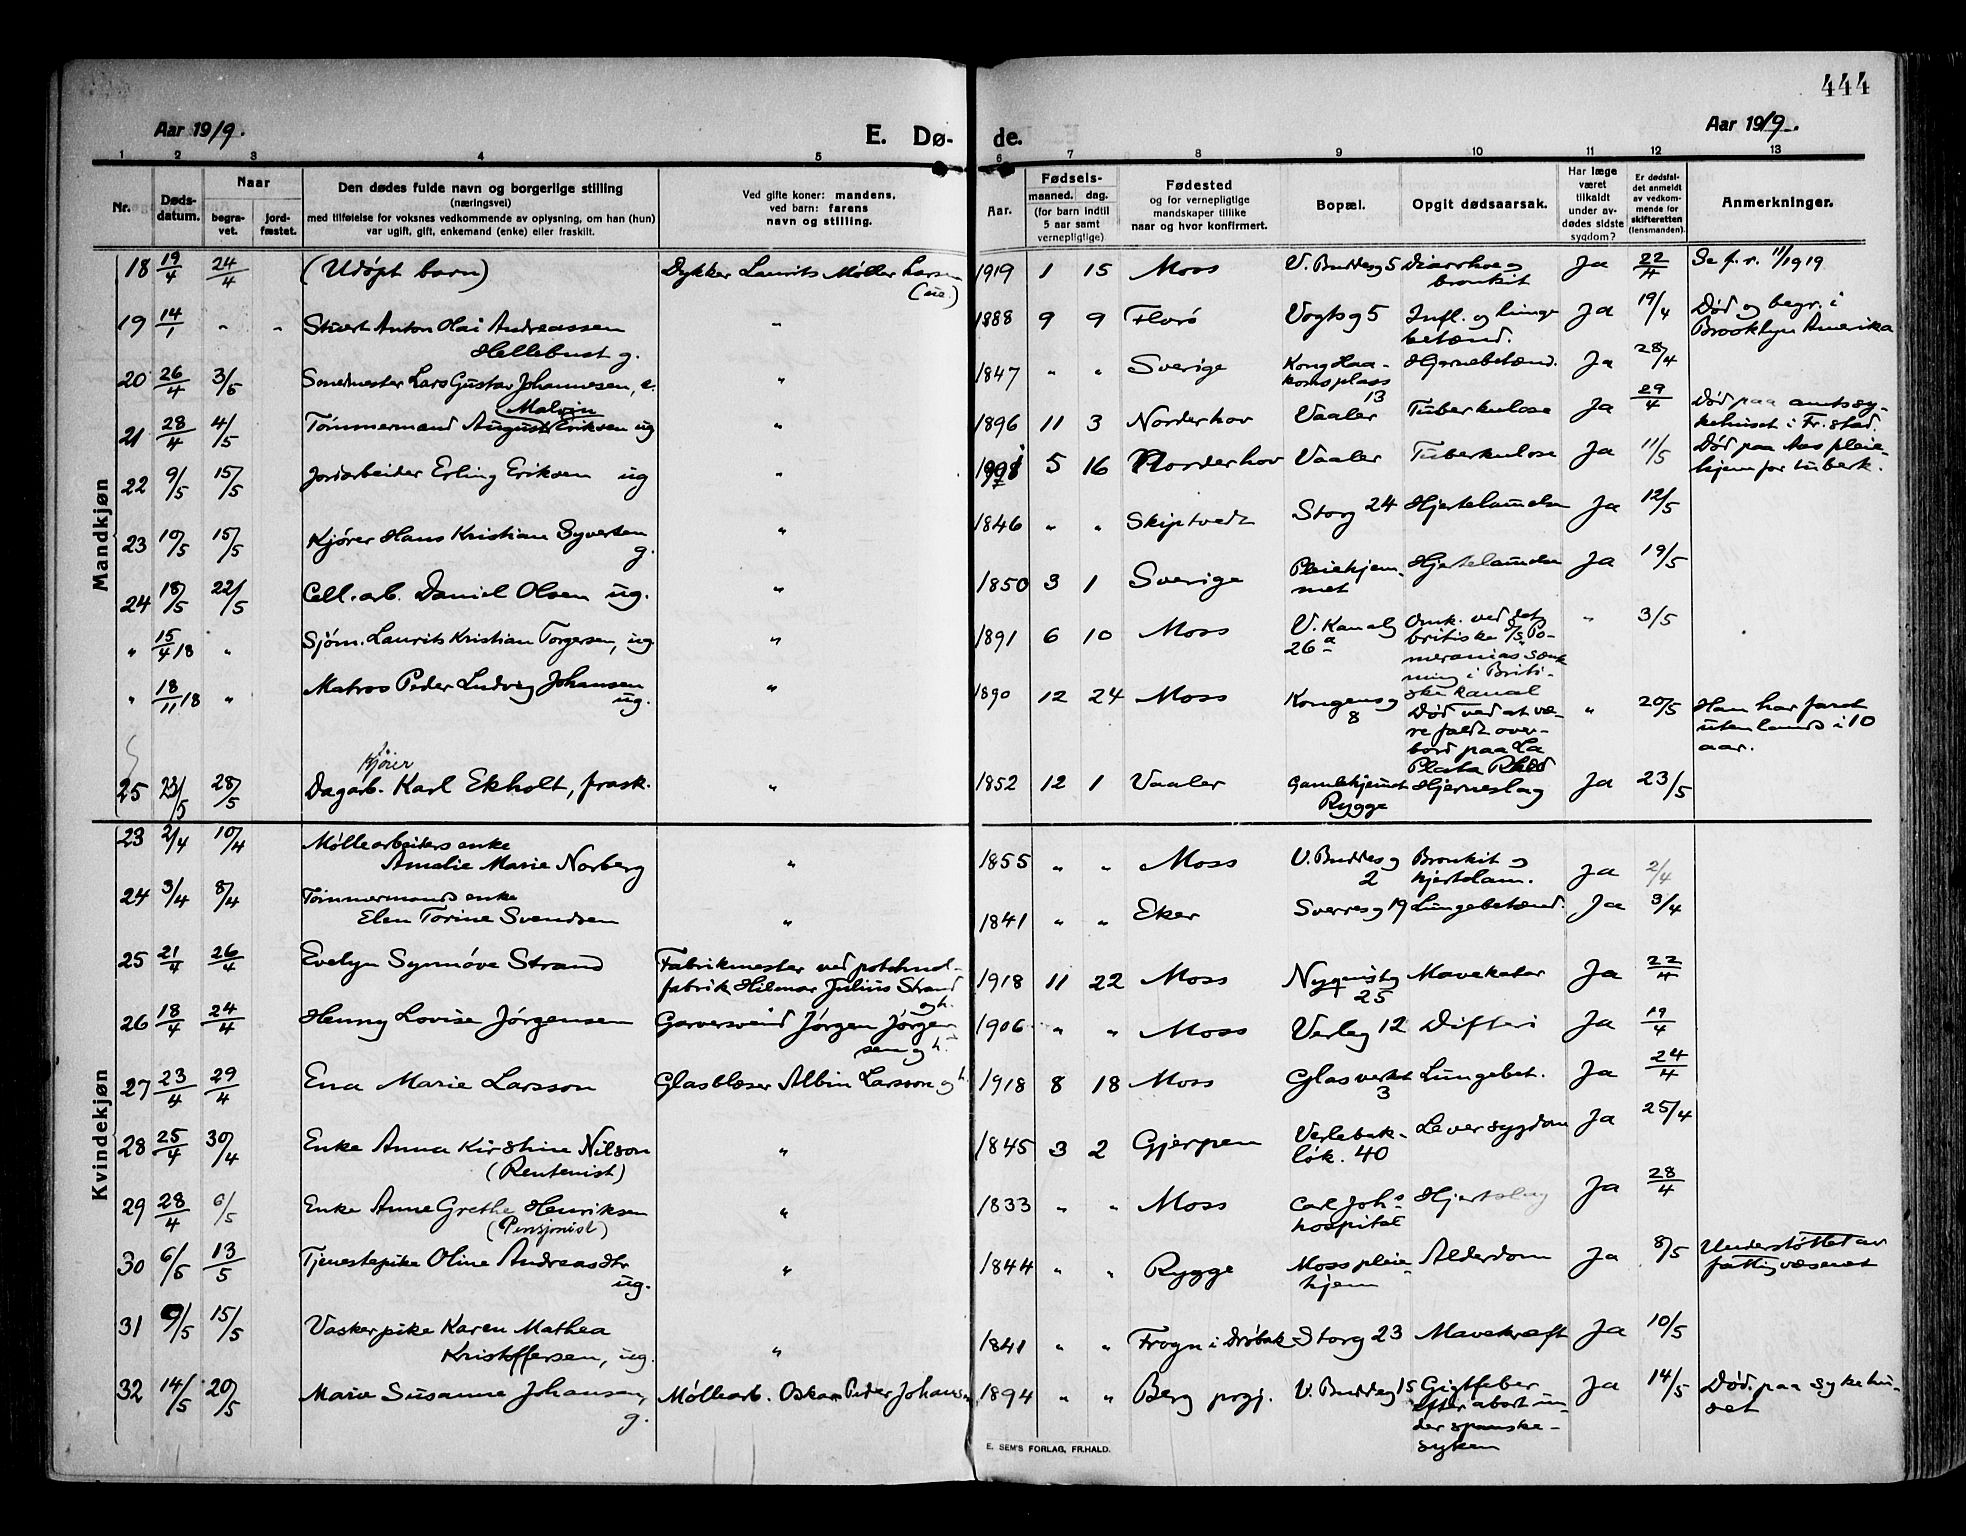 444
Aar 1919.
E. Dø- de.
Aar 1919.
1 2 3 4 5 6 7 8 9 10 11 12 13
Nr.
Døds-
datum.
Naar
begra-
vet.
jord-
fæstet.
Den dødes fulde navn og borgerlige stilling
(næringsvei)
med tilføielse for voksnes vedkommende av oplysning, om han (hun)
var ugift, gift, enkemand (enke) eller fraskilt.
Ved gifte koner: mandens,
ved barn: farens
navn og stilling.
Aar.
Fødsels-
maaned. dag.
(for barn indtil
5 aar samt
vernepligtige)
Fødested
og for vernepligtige
mandskaper tillike
naar og hvor konfirmert.
Bopæl.
Opgit dødsaarsak.
Har læge
været
tilkaldt
under av-
dødes sidste
sygdom?
Er dødsfal-
det anmeldt
av vedkom-
mende for
skifteretten
(lensmanden).
Anmerkninger.
Mandkjøn
18 19/4 24/4 (Udøpt barn) Dykker Laurits Møller Larsen 1919 1 15 Moss V. Buddesg 5 Diarrhoe og Ja 22/4 Se f. r. 11/1919
(ue.) bronkit
19 14/1 " " Stuert Anton Olai Andreassen " 1888 9 9 Florø Vogtsg 5 Infl. og lunge Ja 19/4 Død og begr. i
Hellebust g. betænd. Brooklyn Amerika
20 26/4 3/5 Lars Gustav Johannesen, e. " 1847 " " Sverige Kong Haa- Hjernebetænd. Ja 28/4
konsplass
13
Malvin
21 28/4 4/5 Tømmermand August Eriksen ug " 1896 11 3 Norderhov Vaaler Tuberkulose Ja 29/4 Død paa amtssy-
kehuset i Fr.stad.
22 9/5 15/5 Jordarbeider Erling Eriksen ug " 5 16 Norderhov Vaaler Tuberkulose Ja 11/5 Død paa Aas pleie-
hjem for tuberk.
23 10/5 15/5 Kjører Hans Kristian Syversen " 1846 " " Skiptvedt Storg 24 Hjertelamelse Ja 12/5
g.
24 18/5 22/5 Cell. arb. Daniel Olsen ug. " 1850 3 1 Sverige Pleiehjem- Hjertelamelse Ja 19/5
met
" 15/4 18 " Sjøm. Laurits Kristian Torgersen, ug " 1891 6 10 Moss V. Kanalg Omk. ved det " 3/5
26 a britiske D/S Po-
meranias sænk
ning i Briti-
ske kanal
" 18/11 18 " Matros Peder Ludvig Johansen " 1890 12 24 Moss Kongensg Død ved at væ- " 20/5 Han har faret
ug. 8 re faldt over- utenlands i 10
bord paa La aar.
Plata Rhed
Kjører
25 23/5 28/5 Dagarb. Karl Ekholt, frask. " 1852 12 1 Vaaler Gamlehjemmet Hjerneslag Ja 23/5
Rygge
Kvindekjøn
23 2/4 10/4 Møllearbeiders enke
Amalie Marie Norberg " 1855 " " Moss V. Buddesg Bronkit og Ja 2/4
2 hjertelam.
24 3/4 8/4 Tømmermands enke
Elen Torine Svendsen " 1841 " " Eker Sverresg 19 Lungebetænd. Ja 3/4
25 21/4 26/4 Evelyn Synnøve Strand Fabrikmester ved 1918 11 22 Moss Nygaardsg Mavekatar Ja 22/4
fabrik Hilmar Julius Strand 25
og h.
26 18/4 24/4 Henny Lovise Jørgensen Garversvend Jørgen Jørgen- 1906 " " Moss Verleg 12 Difteri Ja 19/4
sen og h.
27 23/4 29/4 Ena Marie Larsson Glasblæser Albin Larsson og h. 1918 8 18 Moss Glasverket Lungebet. Ja 24/4
3
28 25/4 30/4 Enke Anna Kirstine Nilson " 1845 3 2 Gjerpen Verlebak- Leversygdom Ja 25/4
(Rentenist) løk. 40
29 28/4 6/5 Enke Anne Grethe Henriksen " 1833 " " Moss Carl Joh s Hjerteslag Ja 28/4
(Pensjonist) hospital
30 6/5 13/5 Tjenestepike Oline Andreasdtr " 1844 " " Rygge Moss pleie- Alderdom Ja 8/5 Understøttet av
ug. hjem fattigvæsenet
31 9/5 15/5 Vaskerpike Karen Mathea
Kristoffersen, ug. " 1841 " " Frogn i Drøbak Storg 23 Mavekræft Ja 10/5
32 14/5 20/5 Marie Susanne Johansen, Møllearb. Oskar Peder Johansen 1894 " " Berg prgj. V. Buddeg 15 Gigtfeber Ja 14/5 Død paa sykehu-
g. efter abort un- set
der spanske-
syken
E. SEM'S FORLAG, FR.HALD.